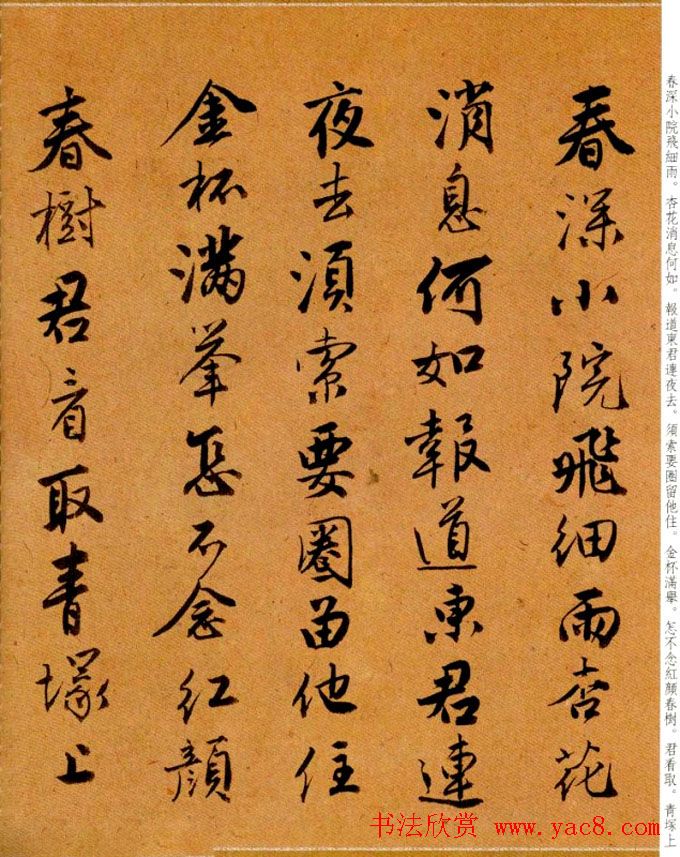 春深小院飛細雨杏花
消息何如報道東君連
夜去須索要圈留他住
金杯滿舉怎不念紅顏
春樹君看取青塚上
春深小院飛細雨。杏花消息何如。報道東君連夜去。須索要圈留他住。金杯滿舉。怎不念紅顏春樹。君看取。青塚上
书法欣赏 www.yac8.com